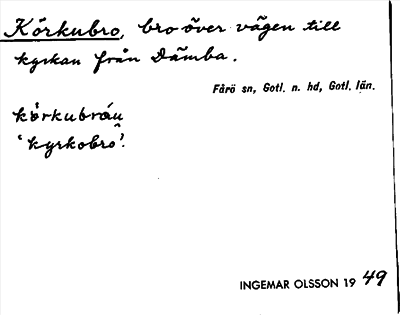 Körkubro, bro över vägen till
kyrkan från Dämba.
Fårö sn, Gotl. n. hd, Gotl. län.
kö̀rkubrá̀u̯
‘kyrkobro’.
INGEMAR OLSSON 19 49